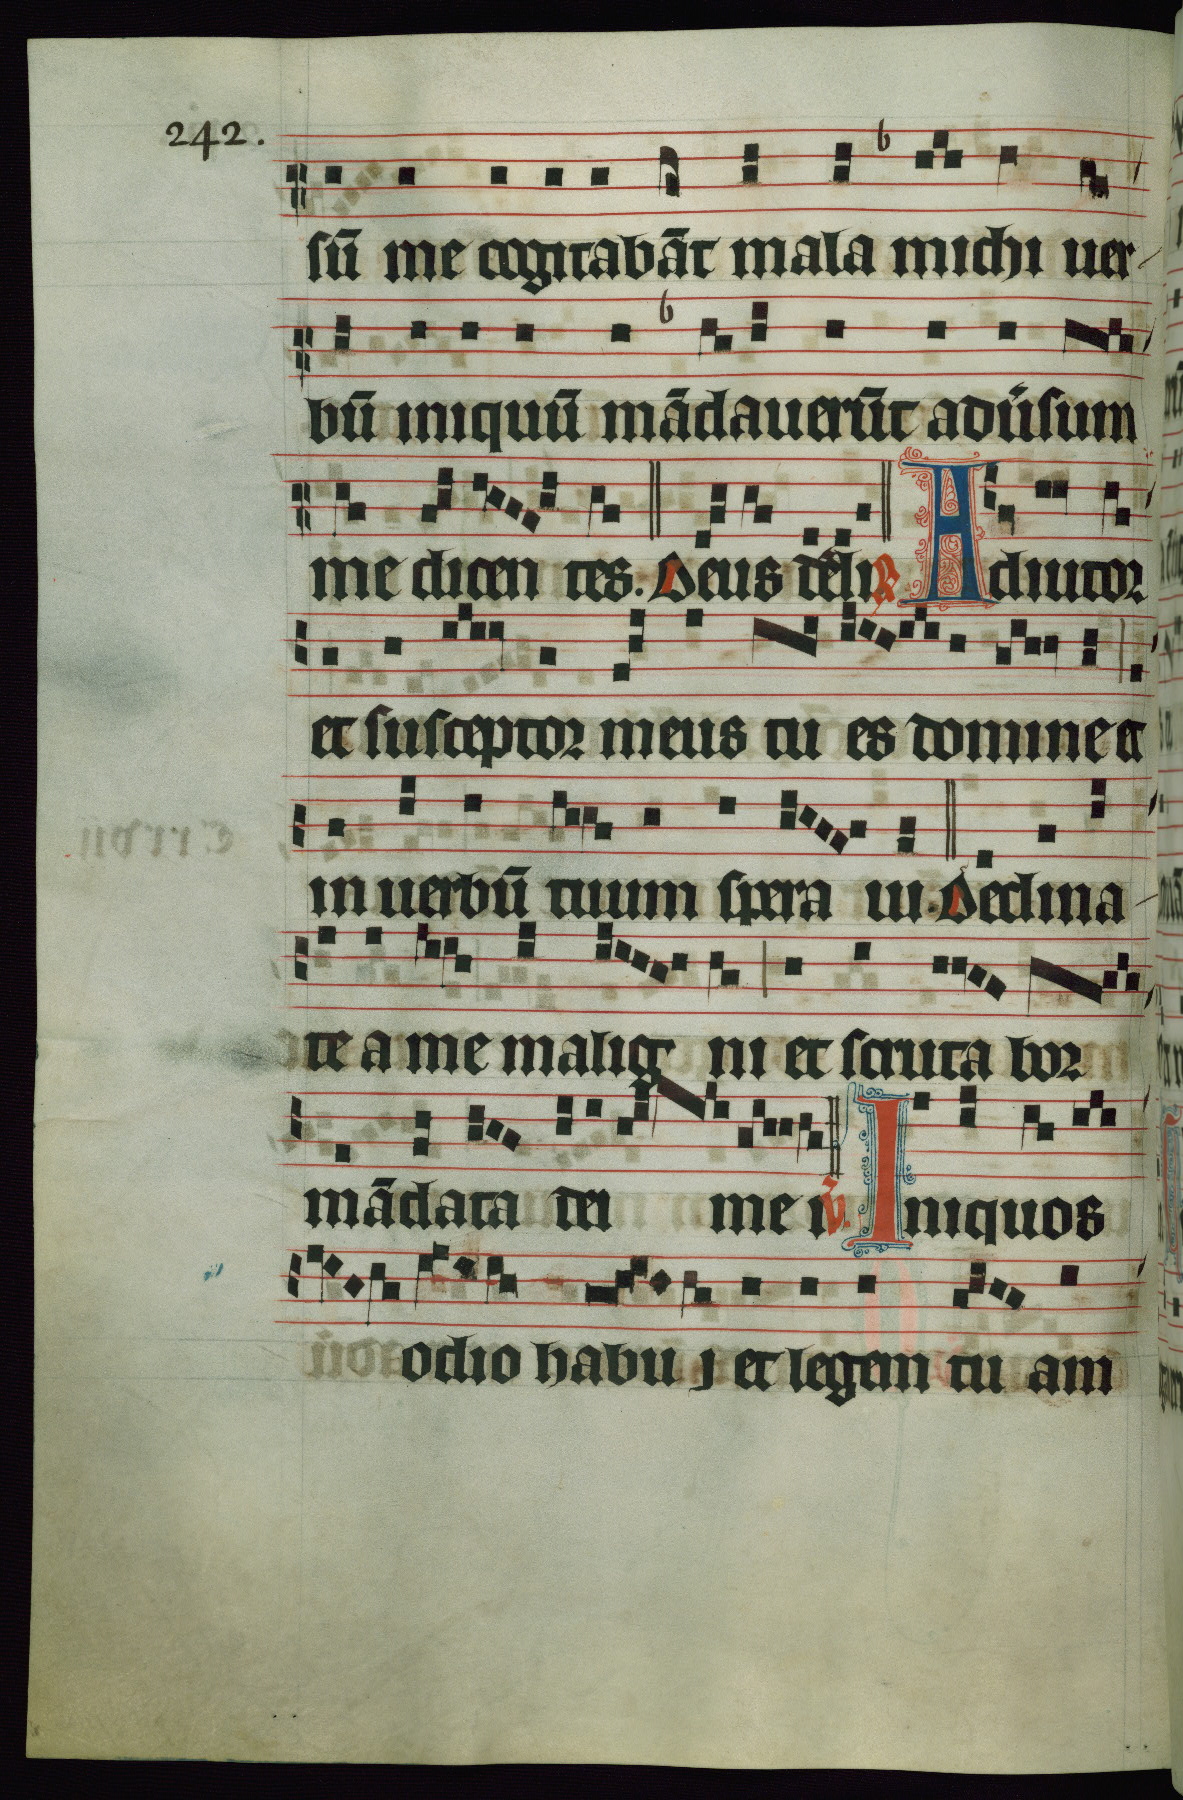 242.
sū me cogitabāt mala michi uer
bū iniquū mādauerūt adu̾sum
me dicen tes. Deus dēli R Adiutor
et susceptor meus tu es domine et
in uerbū tuum spera ui. Declina
te a me malig ni et scruta bor
mādata dei me i V. Iniquos
odio habu j et legem tu am